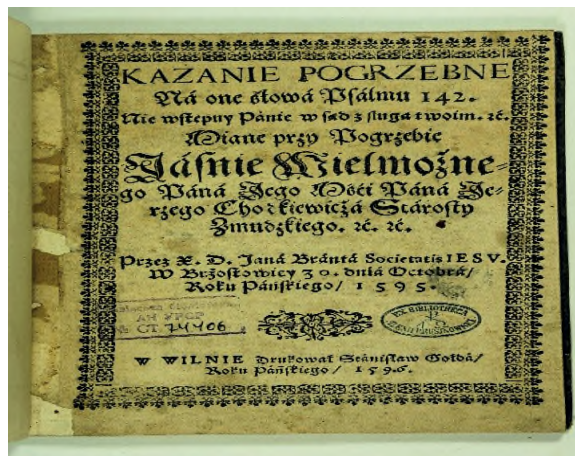 KAZANIE POGRZEBNE
Ná one słowá Psálmu 142.
Nie wstępuy Pánie w sąd z sługą twoim. ꝛc.
Miane przy Pogrzebie
Jáśnie Wielmożne-
go Páná Jego Mści Páná Je-
rzego Chodkiewiczá Stárosty
Zmudzkiego. ꝛc. ꝛc.
Przez X. D. Janá Brántá Societatis IESV.
W Brzostowicy 30. dniá Octobrá/
Roku Páńskiego/ 1595.
CT. 74406
EX BIBLIOTHECA
W WILNIE Drukował Stánisław Gotdá/
Roku Páńskiego/ 1596.